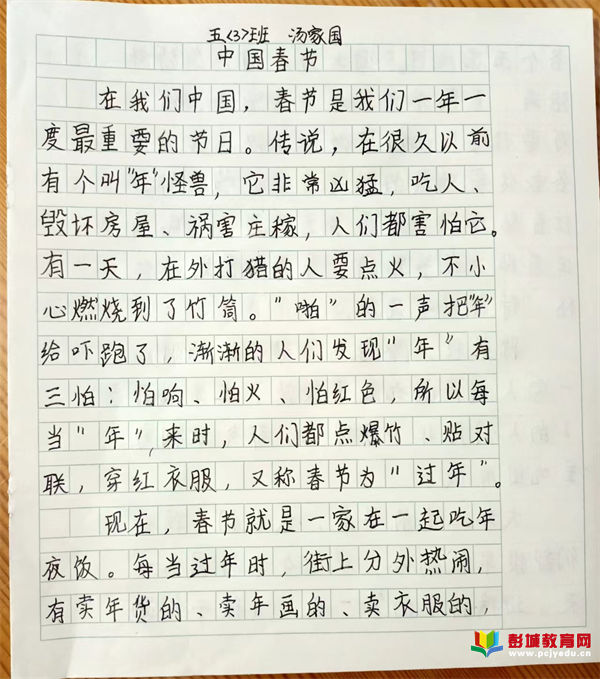 五(3)班 汤家国
中国春节
在我们中国，春节是我们一年一
度最重要的节日。传说，在很久以前
有个叫"年"怪兽，它非常凶猛，吃人、
毁坏房屋、祸害庄稼，人们都害怕它。
有一天，在外打猎的人要点火，不小
心燃烧到了竹筒。"啪"的一声把"年"
给吓跑了，渐渐的人们发现"年"有
三怕：怕响、怕火、怕红色，所以每
当"年"，来时，人们都点爆竹、贴对
联，穿红衣服，又称春节为"过年"。
现在，春节就是一家在一起吃年
夜饭。每当过年时，街上分外热闹，
有卖年货的、卖年画的、卖衣服的，
彭城教育网
www.pcjyedu.cn